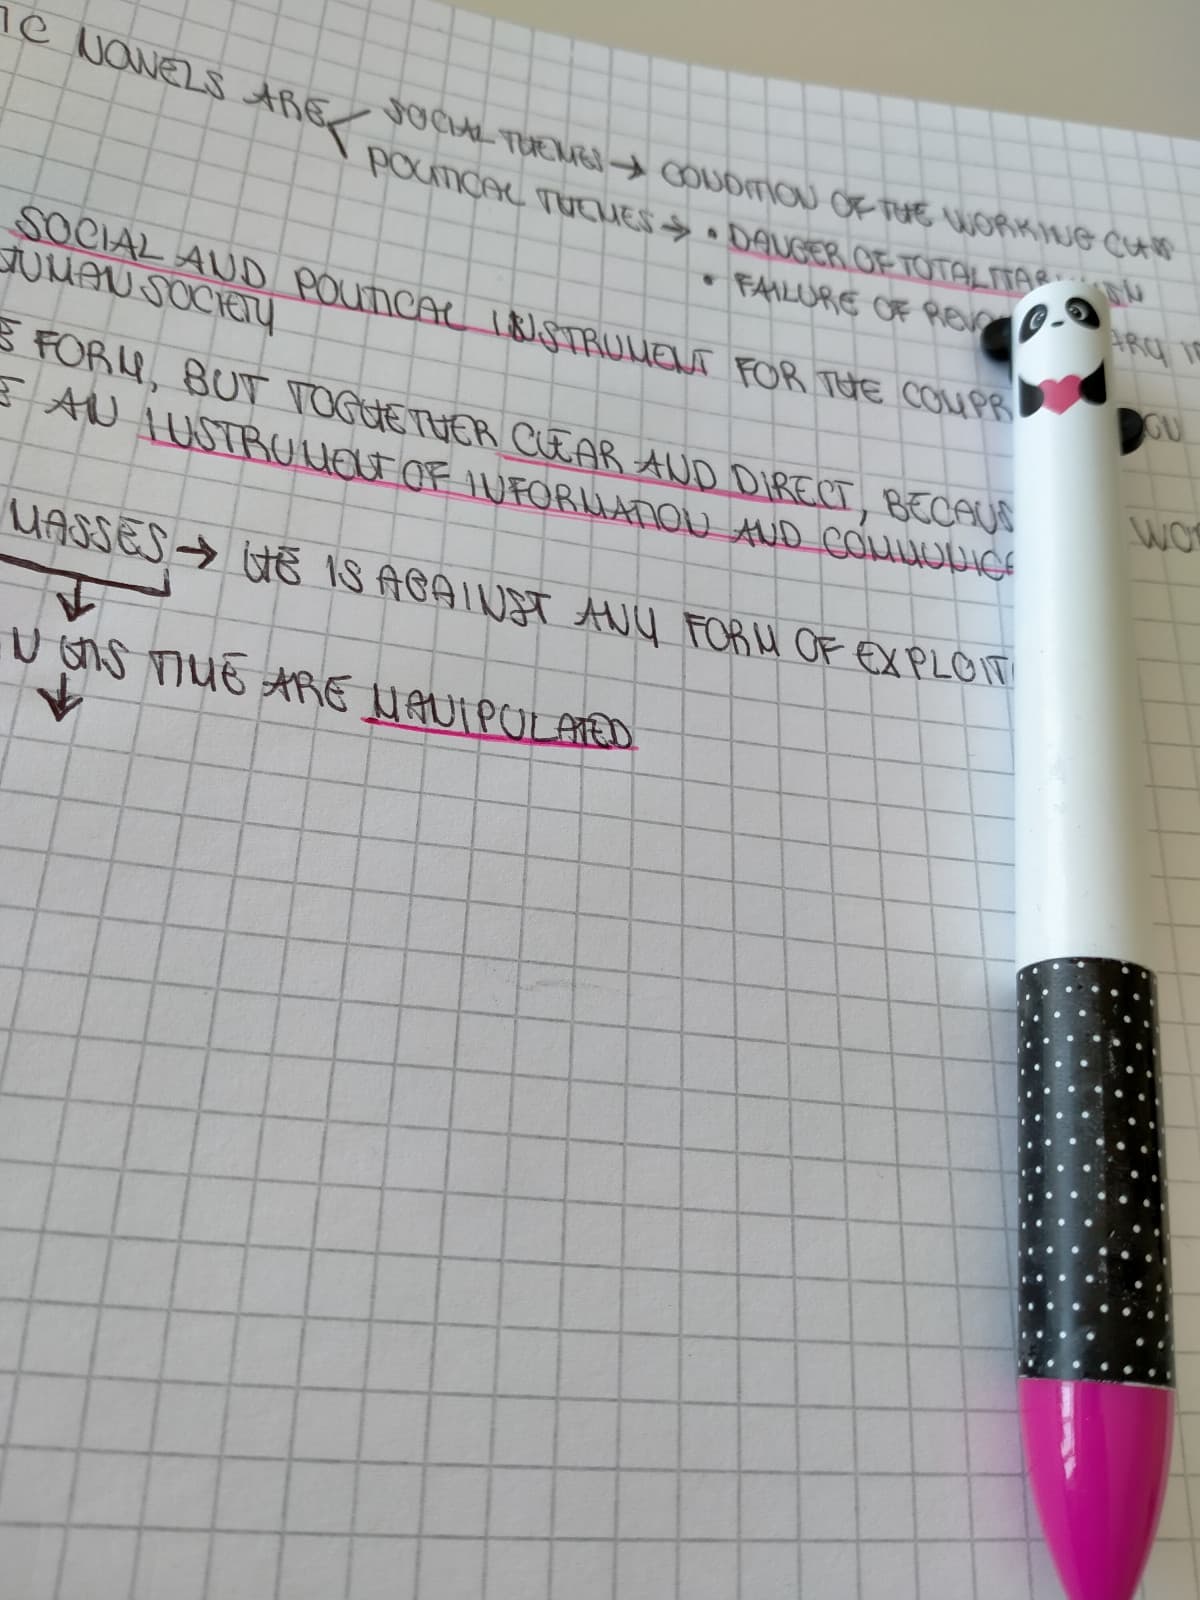 IC NOWELS ARE SOCIAL THEMES → CONDITION OF THE WORKING CLASS
POLITICAL THEMES → • DANGER OF TOTALITARIANISM
• FAILURE OF
SOCIAL AND POLITICAL INSTRUMENT FOR THE COMPR
HUMAN SOCIETY
FORM, BUT TOGUETHER CLEAR AND DIRECT, BECAUS
AN INSTRUMENT OF INFORMATION AND COMMUNIC
MASSES → HE IS AGAINST ANY FORM OF EXPLOIT
TIME ARE MANIPULATED